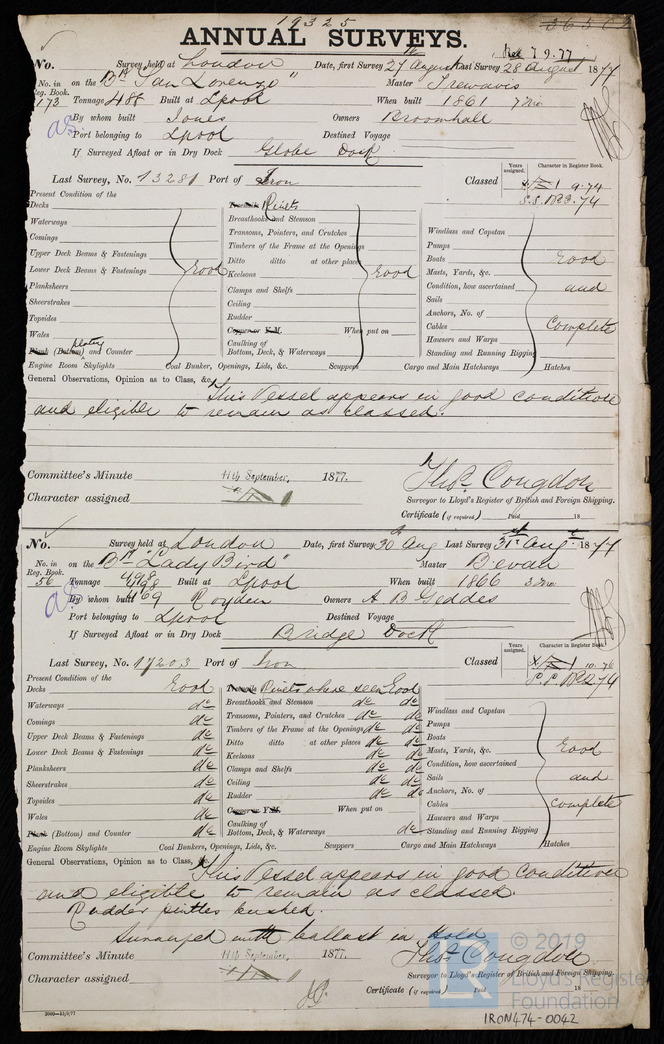 19325
ANNUAL SURVEYS.
Rec 7.9.77
No. Survey held at London Date, first Survey 27th August Last Survey 28 August 1877
No. in Reg. Book. 173 on the Bk "San Lorenzo" Master Trewavis
Tonnage 485 Built at Lpool When built 1861 7 mo
By whom built Jones Owners Broomhall
Port belonging to Lpool Destined Voyage
If Surveyed Afloat or in Dry Dock Globe Dock
Last Survey, No. 13281 Port of Iron Classed
Years assigned. Character in Register Book.
9.74
S.S. No.3.74
Present Condition of the
Decks
Waterways
Comings
Upper Deck Beams & Fastenings
Lower Deck Beams & Fastenings Good
Planksheers
Sheerstrakes
Topsides
Wales
Plank (Bottom) plating and Counter
Engine Room Skylights
Treenails Rivets
Breasthooks and Stemson
Transoms, Pointers, and Crutches
Timbers of the Frame at the Openings
Ditto ditto at other places
Keelsons Good
Clamps and Shelfs
Ceiling
Rudder
Copper or Y.M. When put on
Caulking of
Bottom, Deck, & Waterways
Coal Bunker, Openings, Lids, &c. Scuppers Cargo and Main Hatchways Hatches
Windlass and Capstan
Pumps
Boats Good
Masts, Yards, &c.
Condition, how ascertained and
Sails
Anchors, No. of
Cables Complete
Hawsers and Warps
Standing and Running Rigging
General Observations, Opinion as to Class, &c. This Vessel appears in good condition
and eligible to remain as classed.
Committee's Minute 11th September, 1877.
Character assigned
Thos. Congdon
Surveyor to Lloyd's Register of British and Foreign Shipping.
Certificate (if required) Paid 18
No. Survey held at London Date, first Survey 30th Aug Last Survey 31st Augt 1877
No. in Reg. Book. 56 on the Bk "Lady Bird" Master Bevan
Tonnage 498 Built at Lpool When built 1866 3 mo
By whom built Royden Owners A B Geddes
469
Port belonging to Lpool Destined Voyage
If Surveyed Afloat or in Dry Dock Bridge Dock
Last Survey, No. 17203 Port of Iron Classed
Years assigned. Character in Register Book.
10.76
Present Condition of the
Decks Good
Waterways do
Comings do
Upper Deck Beams & Fastenings do
Lower Deck Beams & Fastenings do
Planksheers do
Sheerstrakes do
Topsides do
Wales do
Plank (Bottom) and Counter do
Engine Room Skylights
Treenails Rivets where seen Good
Breasthooks and Stemson do do
Transoms, Pointers, and Crutches do do
Timbers of the Frame at the Openings do do
Ditto ditto at other places do do
Keelsons do do
Clamps and Shelfs do do
Ceiling do do
Rudder do do
Copper or Y.M. When put on
Caulking of
Bottom, Deck, & Waterways do
Coal Bunkers, Openings, Lids, &c. Scuppers Cargo and Main Hatchways Hatches
Windlass and Capstan
Pumps
Boats Good
Masts, Yards, &c.
Condition, how ascertained
Sails and
Anchors, No. of
Cables complete
Hawsers and Warps
Standing and Running Rigging
General Observations, Opinion as to Class, &c. This Vessel appears in good condition
and eligible to remain as classed.
Rudder pintles bushed.
Surveyed with ballast in Hold
Committee's Minute 11th September, 1877.
Character assigned
Thos. Congdon
Surveyor to Lloyd's Register of British and Foreign Shipping.
Certificate (if required) Paid 18
© 2019
Lloyd's Register
Foundation
IRON474-0042